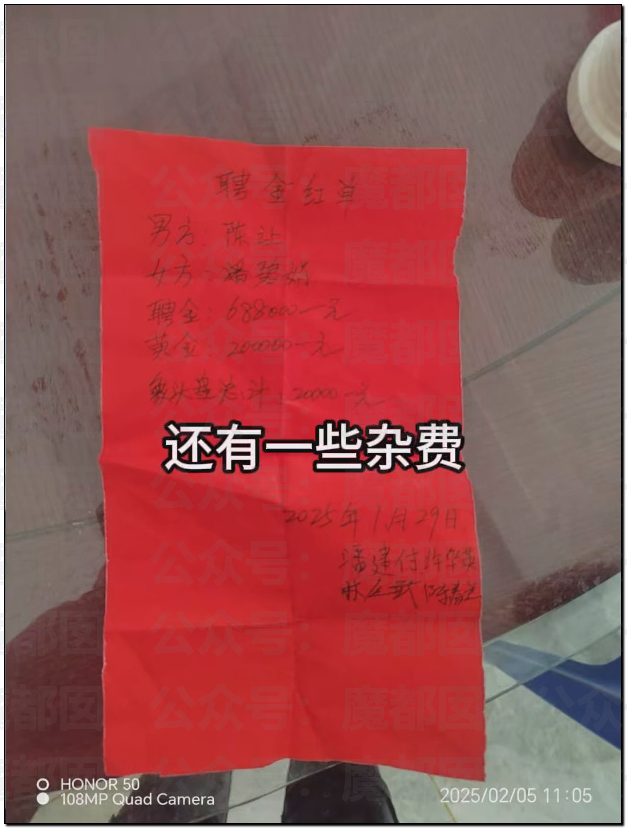 聘金红单
男方：陈让
女方：潘碧娟
聘金：688000一元
黄金：200000一元
盘头盘总计：20000一元
还有一些杂费
2025年1月29日
潘建付 许华英
HONOR 50
108MP Quad Camera
2025/02/05 11:05
公众号：魔都囡